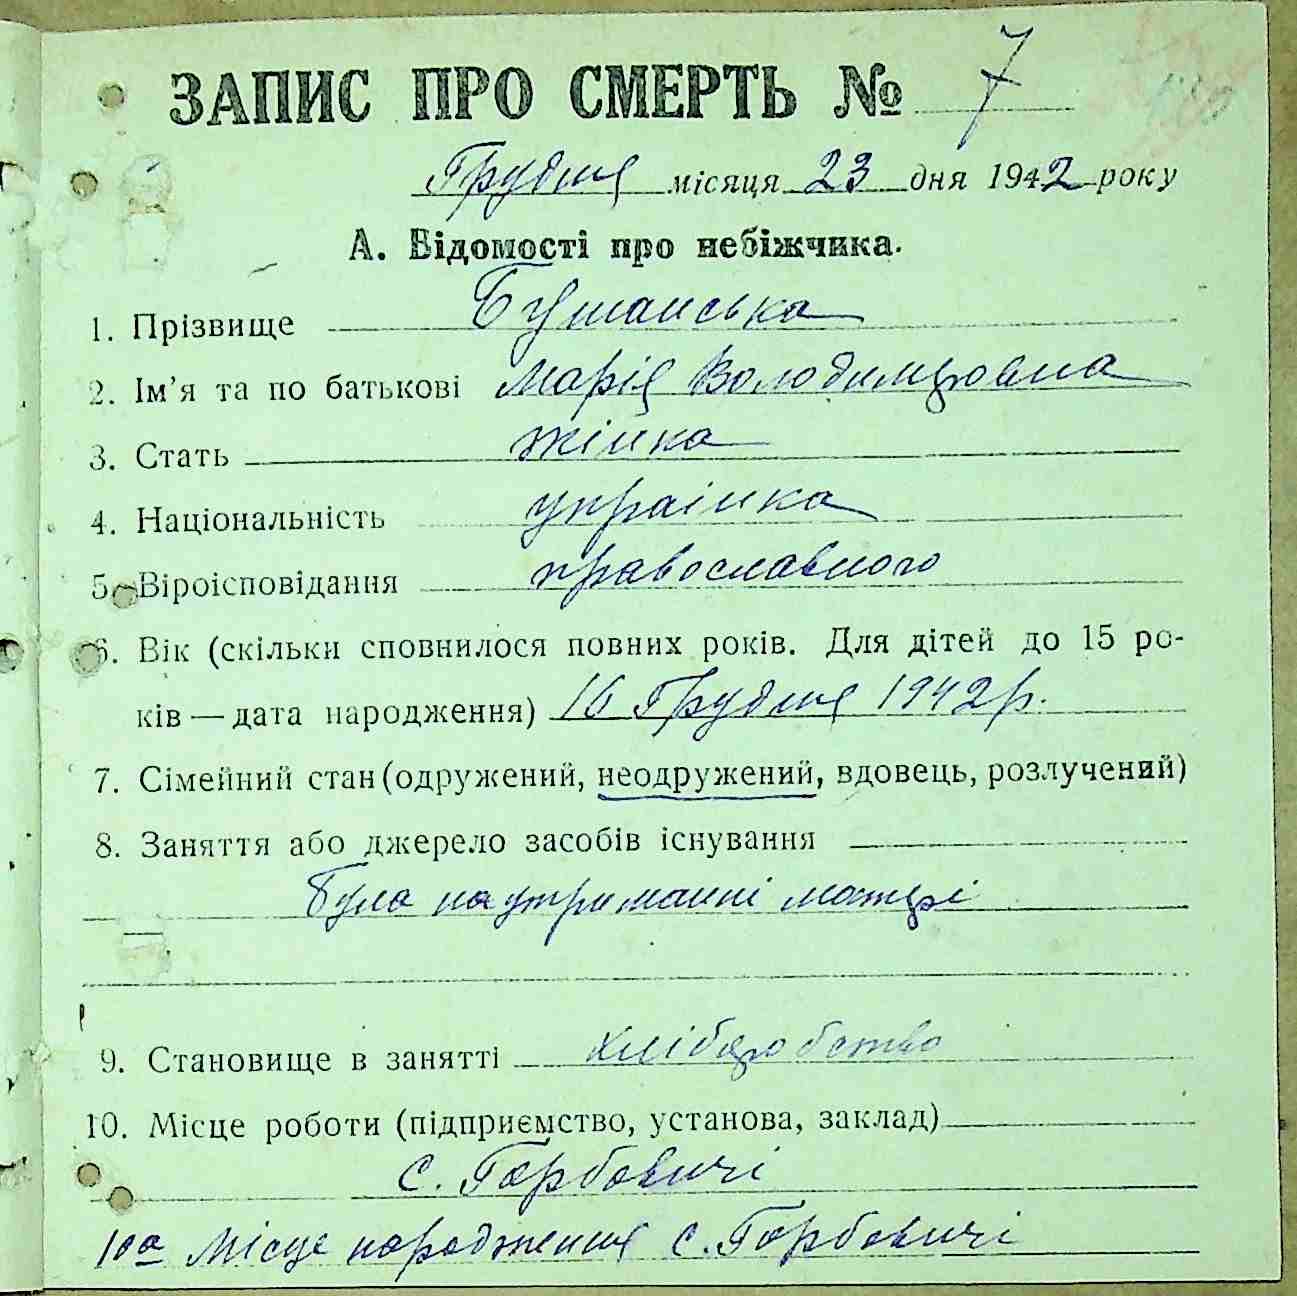 ЗАПИС ПРО СМЕРТЬ № 7
Грудня місяця 23 дня 1942 року
А. Відомості про небіжчика.
1. Прізвище Бушанська
2. Ім'я та по батькові Марія Володимировна
3. Стать жінка
4. Національність українка
5. Віроісповідання православного
6. Вік (скільки сповнилося повних років. Для дітей до 15 ро-
ків — дата народження) 16 Грудня 1942 р.
7. Сімейний стан (одружений, неодружений, вдовець, розлучений)
8. Заняття або джерело засобів існування
Була на утриманні матері
9. Становище в занятті хліборобство
10. Місце роботи (підприємство, установа, заклад)
с. Горбовичі
10а Місце народження с. Горбовичі